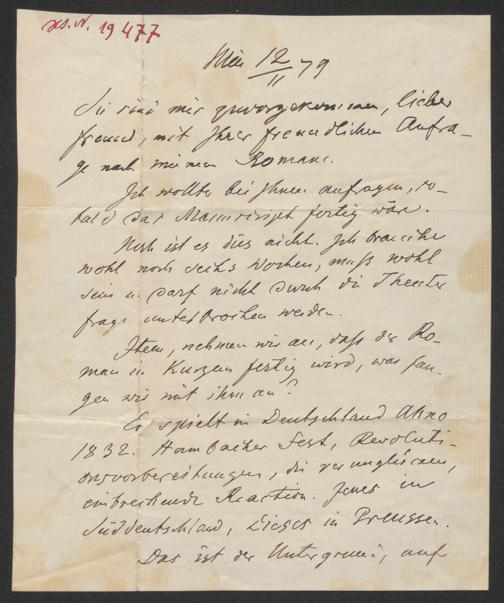 H.I.N. 19477
Wien 12/II 79
Sie sind mir zuvorgekommen, lieber
Freund, mit Ihrer freundlichen Anfra-
ge nach meinem Roman.
Ich wollte bei Ihnen anfragen, so-
bald das Manuscript fertig wäre.
Noch ist es dies nicht. Ich brauche
wohl noch sechs Wochen, muß wohl
sein u. darf nicht durch die Theater
frage unterbrochen werden.
Item, nehmen wir an, daß der Ro-
man in Kurzem fertig wird, was fan-
gen wir mit ihm an?
Er spielt in Deutschland Anno
1832. Hambacher Fest, Revoluti-
onsvorbereitungen, die verunglücken,
einbrechende Reaction. Jenes in
Süddeutschland, Dieses in Preussen.
Das ist der Untergrund, auf